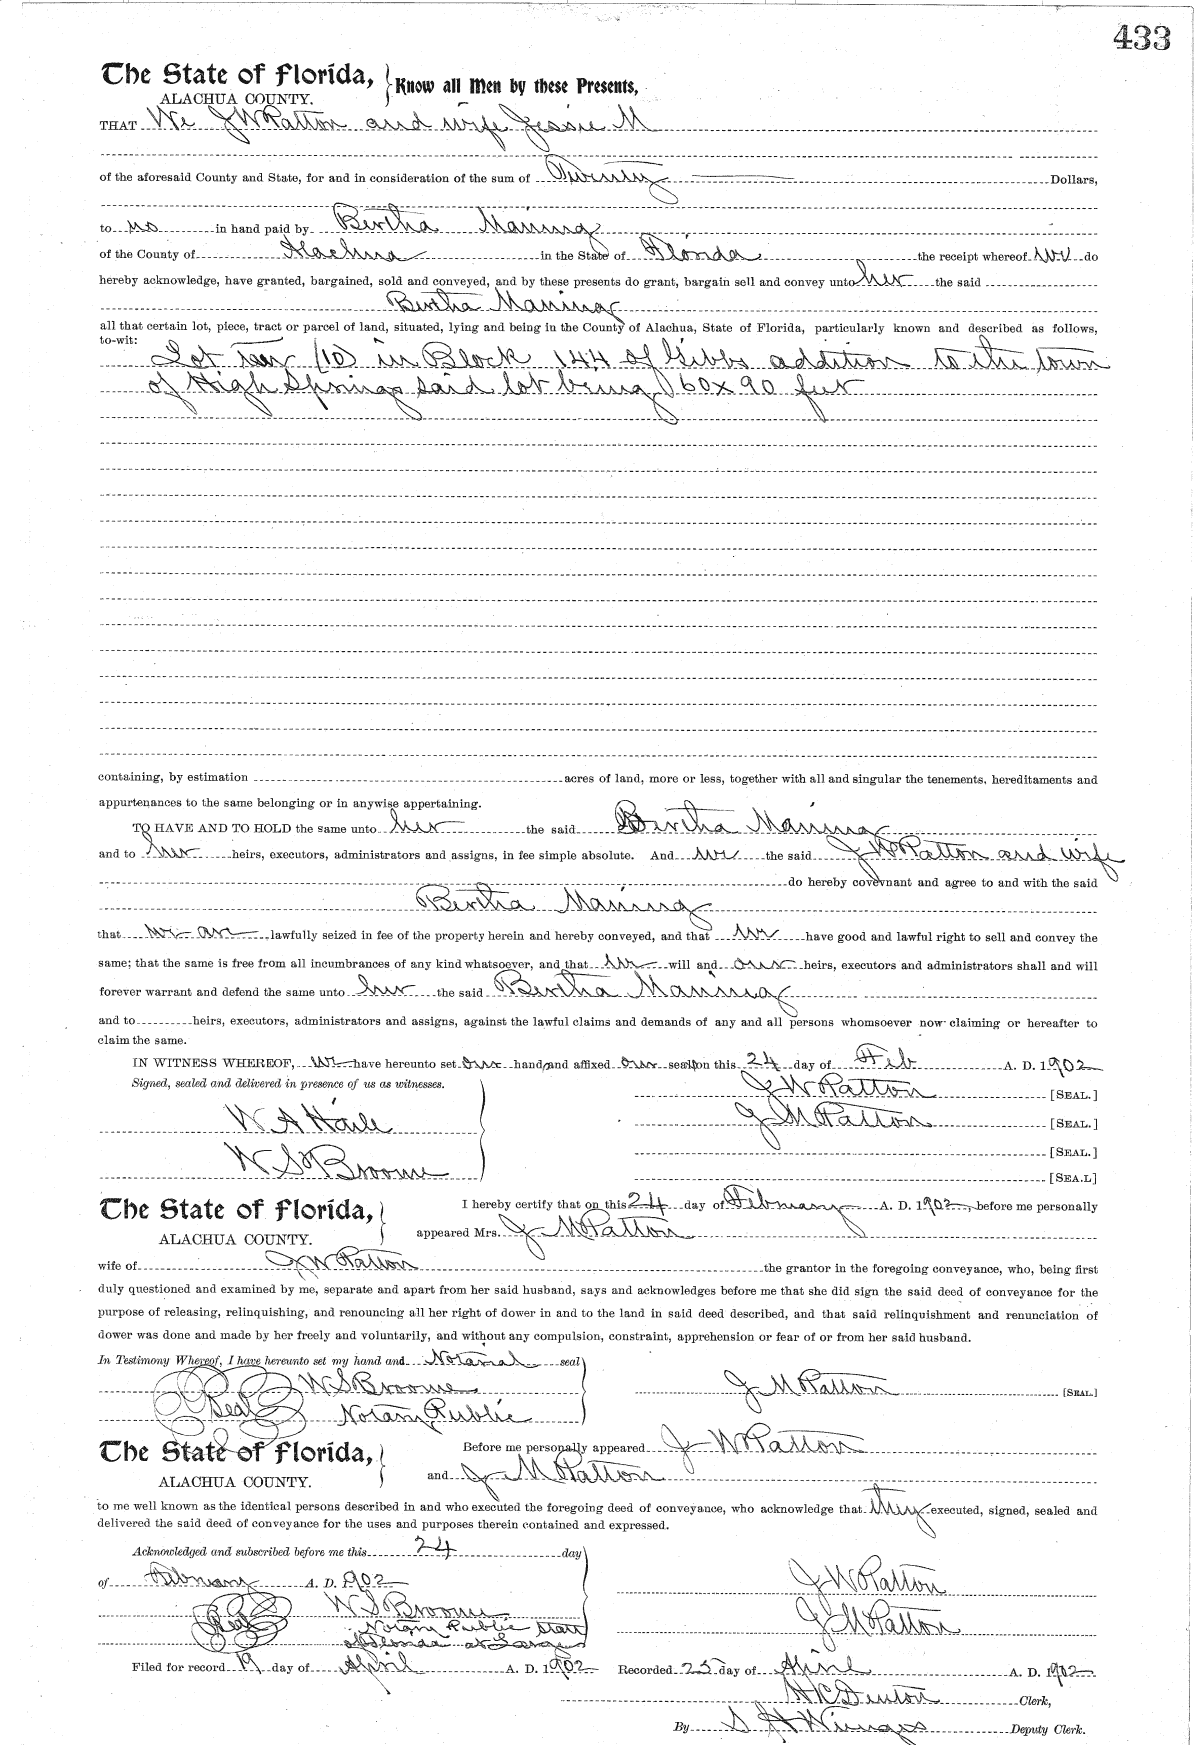 433
The State of Florida,
ALACHUA COUNTY.
Know all Men by these Presents,
THAT We J W Patton and wife Jessie M
of the aforesaid County and State, for and in consideration of the sum of Twenty Dollars,
to us in hand paid by Bertha Maning
of the County of Alachua in the State of Florida the receipt whereof we do
hereby acknowledge, have granted, bargained, sold and conveyed, and by these presents do grant, bargain sell and convey unto her the said
Bertha Maning
all that certain lot, piece, tract or parcel of land, situated, lying and being in the County of Alachua, State of Florida, particularly known and described as follows,
to-wit:
Lot ten (10) in Block 144 of Gibbs addition to the town
of High Springs said lot being 60 x 90 feet
containing, by estimation acres of land, more or less, together with all and singular the tenements, hereditaments and
appurtenances to the same belonging or in anywise appertaining.
TO HAVE AND TO HOLD the same unto her the said Bertha Maning
and to her heirs, executors, administrators and assigns, in fee simple absolute. And we the said J W Patton and wife
do hereby covevnant and agree to and with the said
Bertha Maning
that we are lawfully seized in fee of the property herein and hereby conveyed, and that we have good and lawful right to sell and convey the
same; that the same is free from all incumbrances of any kind whatsoever, and that we will and our heirs, executors and administrators shall and will
forever warrant and defend the same unto her the said Bertha Maning
and to heirs, executors, administrators and assigns, against the lawful claims and demands of any and all persons whomsoever now claiming or hereafter to
claim the same.
IN WITNESS WHEREOF, we have hereunto set our hands and affixed our seals on this 24 day of Feb A. D. 1902
Signed, sealed and delivered in presence of us as witnesses.
J W Patton [SEAL.]
W A Haile
J M Patton [SEAL.]
[SEAL.]
W S Broome
[SEA.L]
The State of Florida,
ALACHUA COUNTY.
I hereby certify that on this 24 day of February A. D. 1902, before me personally
appeared Mrs. J M Patton
wife of J W Patton the grantor in the foregoing conveyance, who, being first
duly questioned and examined by me, separate and apart from her said husband, says and acknowledges before me that she did sign the said deed of conveyance for the
purpose of releasing, relinquishing, and renouncing all her right of dower in and to the land in said deed described, and that said relinquishment and renunciation of
dower was done and made by her freely and voluntarily, and without any compulsion, constraint, apprehension or fear of or from her said husband.
In Testimony Whereof, I have hereunto set my hand and Notarial seal
W S Broome
J M Patton [SEAL.]
Seal Notary Public
The State of Florida,
ALACHUA COUNTY.
Before me personally appeared J W Patton
and J M Patton
to me well known as the identical persons described in and who executed the foregoing deed of conveyance, who acknowledge that they executed, signed, sealed and
delivered the said deed of conveyance for the uses and purposes therein contained and expressed.
Acknowledged and subscribed before me this 24 day
of February A. D. 1902
J W Patton
W S Broome
Seal Notary Public State
J M Patton
of Florida at Large
Filed for record 19 day of April A. D. 1902 Recorded 25 day of April A. D. 1902
Denton Clerk,
By Deputy Clerk.